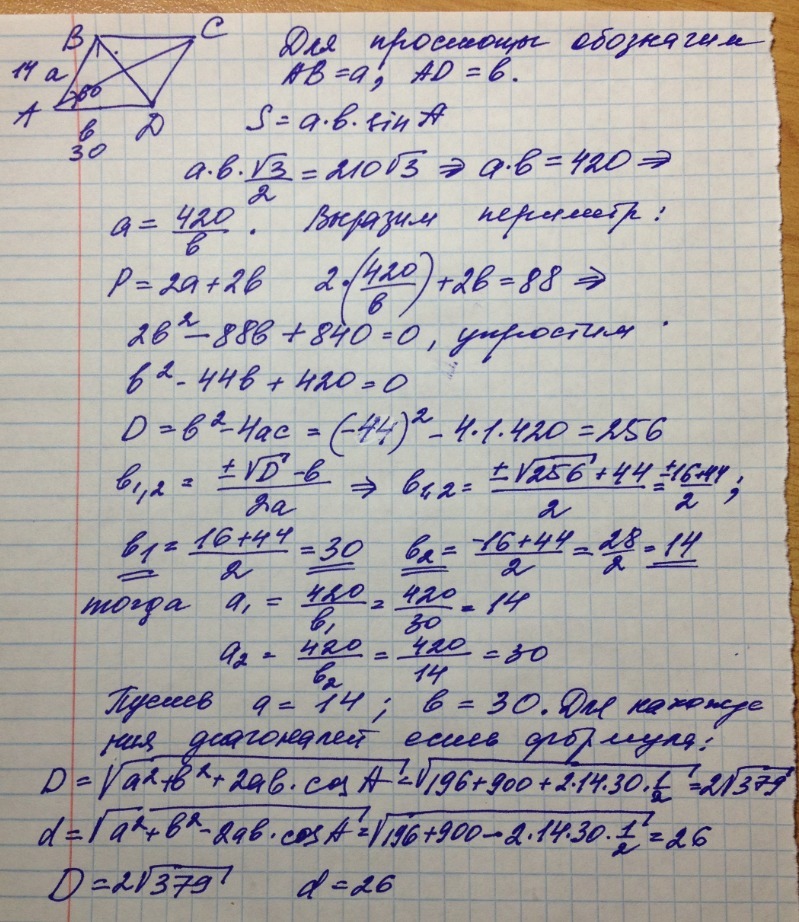 B C
14 a 60
A в D
30
Для простоты обозначим
AB = a; AD = в.
S = a·в·sin A
a·в·√3/2 = 210√3 ⇒ a·в = 420 ⇒
a = 420/в. Выразим периметр:
P = 2a + 2в 2·(420/в) + 2в = 88 ⇒
2в² - 88в + 840 = 0, упростим
в² - 44в + 420 = 0
D = в² - 4ac = (-44)² - 4·1·420 = 256
в₁,₂ = (±√D - в)/2a ⇒ в₁,₂ = (±√256 + 44)/2 = (±16+44)/2;
в₁ = (16+44)/2 = 30 в₂ = (-16+44)/2 = 28/2 = 14
тогда a₁ = 420/в₁ = 420/30 = 14
a₂ = 420/в₂ = 420/14 = 30
Пусть a = 14; в = 30. Для нахожде
ния диагоналей есть формула:
D = √(a² + в² + 2aв·cos A) = √(196 + 900 + 2·14·30·1/2) = 2√379
d = √(a² + в² - 2aв·cos A) = √(196 + 900 - 2·14·30·1/2) = 26
D = 2√379 d = 26